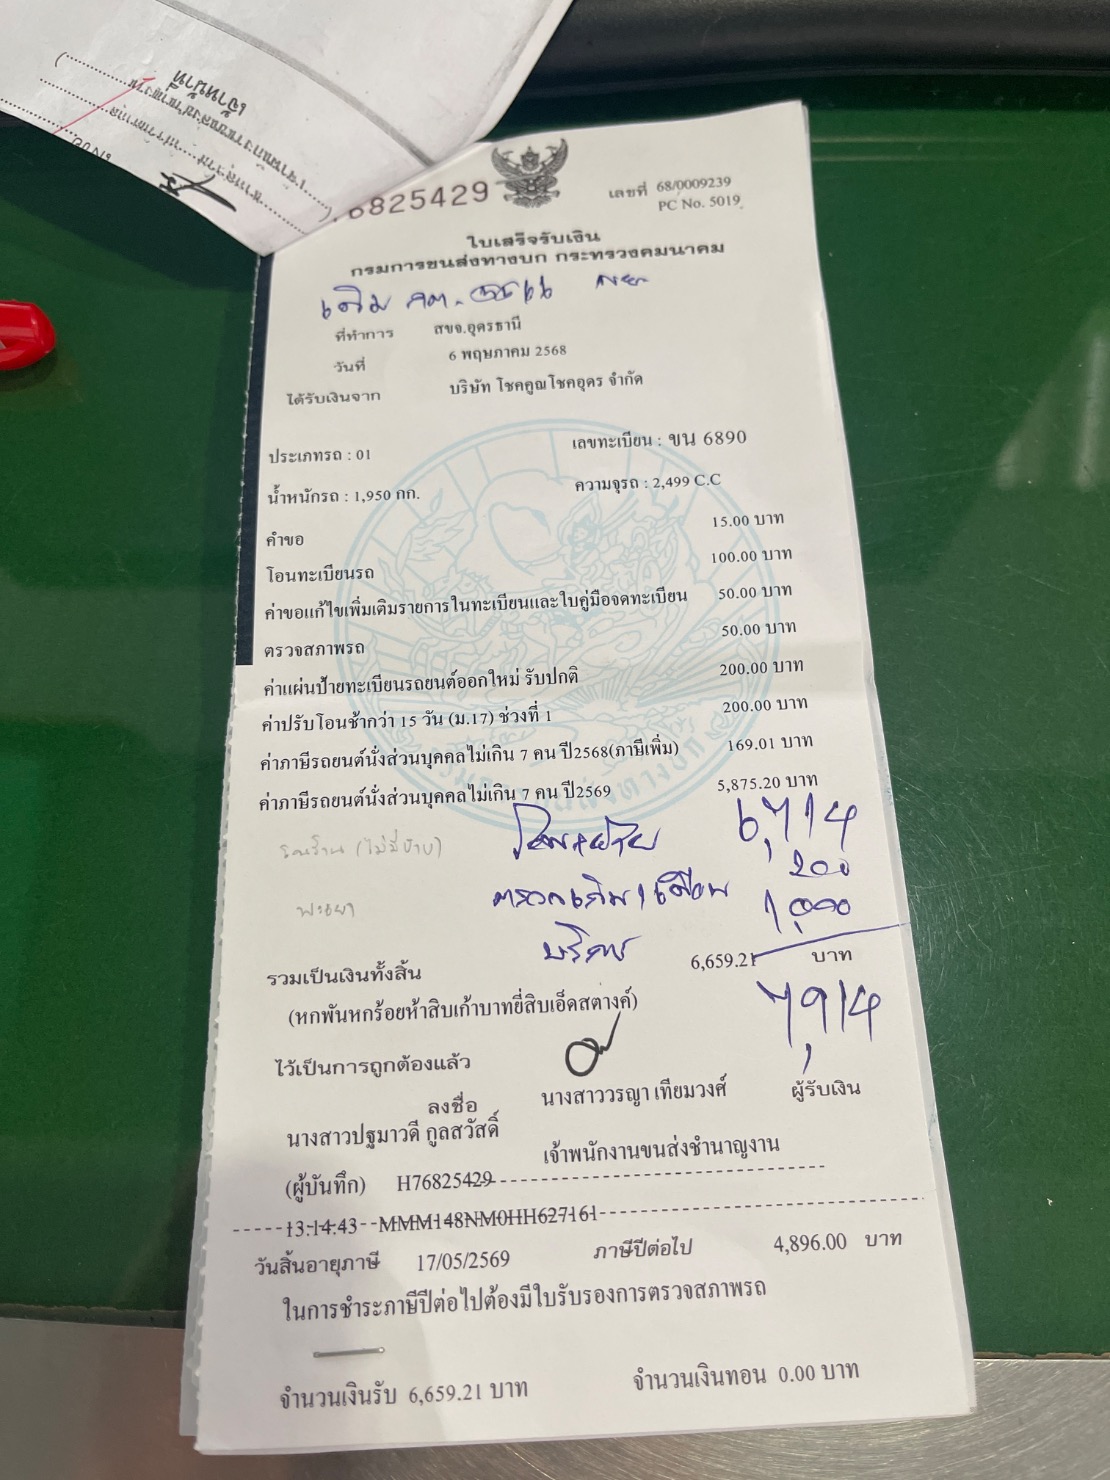 6825429
เลขที่ 68/0009239
PC No. 5019
ใบเสร็จรับเงิน
กรมการขนส่งทางบก กระทรวงคมนาคม
เดิม
ที่ทำการ สขจ.อุดรธานี
วันที่ 6 พฤษภาคม 2568
ได้รับเงินจาก บริษัท โชคคูณโชคอุดร จำกัด
ประเภทรถ : 01 เลขทะเบียน : ขน 6890
น้ำหนักรถ : 1,950 กก. ความจุรถ : 2,499 C.C
คำขอ 15.00 บาท
โอนทะเบียนรถ 100.00 บาท
ค่าขอแก้ไขเพิ่มเติมรายการในทะเบียนและใบคู่มือจดทะเบียน 50.00 บาท
ตรวจสภาพรถ 50.00 บาท
ค่าแผ่นป้ายทะเบียนรถยนต์ออกใหม่ รับปกติ 200.00 บาท
ค่าปรับโอนช้ากว่า 15 วัน (ม.17) ช่วงที่ 1 200.00 บาท
ค่าภาษีรถยนต์นั่งส่วนบุคคลไม่เกิน 7 คน ปี2568(ภาษีเพิ่ม) 169.01 บาท
ค่าภาษีรถยนต์นั่งส่วนบุคคลไม่เกิน 7 คน ปี2569 5,875.20 บาท
6,714
(ไม่มีป้าย)
200
1,000
บริการ
รวมเป็นเงินทั้งสิ้น 6,659.21 บาท
(หกพันหกร้อยห้าสิบเก้าบาทยี่สิบเอ็ดสตางค์)
7,914
ไว้เป็นการถูกต้องแล้ว
ลงชื่อ นางสาววรญา เทียมวงศ์ ผู้รับเงิน
นางสาวปฐมาวดี กูลสวัสดิ์
เจ้าพนักงานขนส่งชำนาญงาน
(ผู้บันทึก) H76825429
13:14:43 MMM148NM0HH627161
วันสิ้นอายุภาษี 17/05/2569 ภาษีปีต่อไป 4,896.00 บาท
ในการชำระภาษีปีต่อไปต้องมีใบรับรองการตรวจสภาพรถ
จำนวนเงินรับ 6,659.21 บาท จำนวนเงินทอน 0.00 บาท